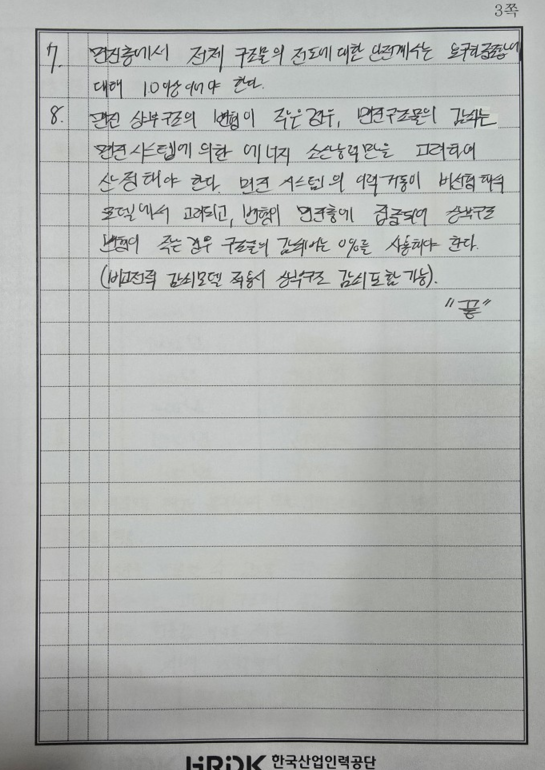 3쪽
7. 면진층에서 전체 구조물의 전도에 대한 안전계수는 요구하중조합에
대해 1.0이상 이어야 한다.
8. 면진 상부구조의 변형이 작은경우, 면진구조물의 감쇠는
면진시스템에 의한 에너지 소산능력만을 고려하여
산정해야 한다. 면진 시스템의 이력거동이 비선형 해석
모델에서 고려되고, 변형이 면진층에 집중되어 상부구조
변형이 작은 경우 구조물의 감쇠비는 0%를 사용해야 한다.
(비고전적 감쇠모델 적용시 상부구조 감쇠 포함 가능).
"끝"
HRDK 한국산업인력공단